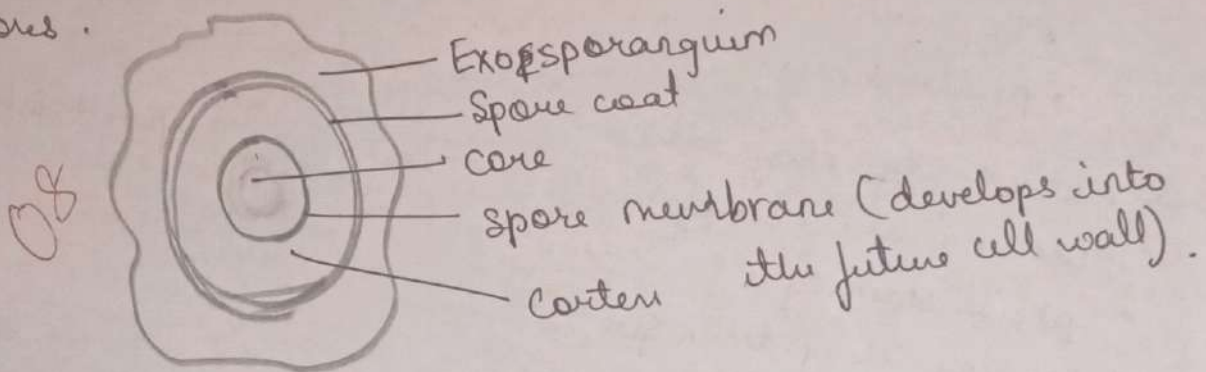 ores.
Exosporangium
Spore coat
core
spore membrane (develops into
the future cell wall).
Cortex
08